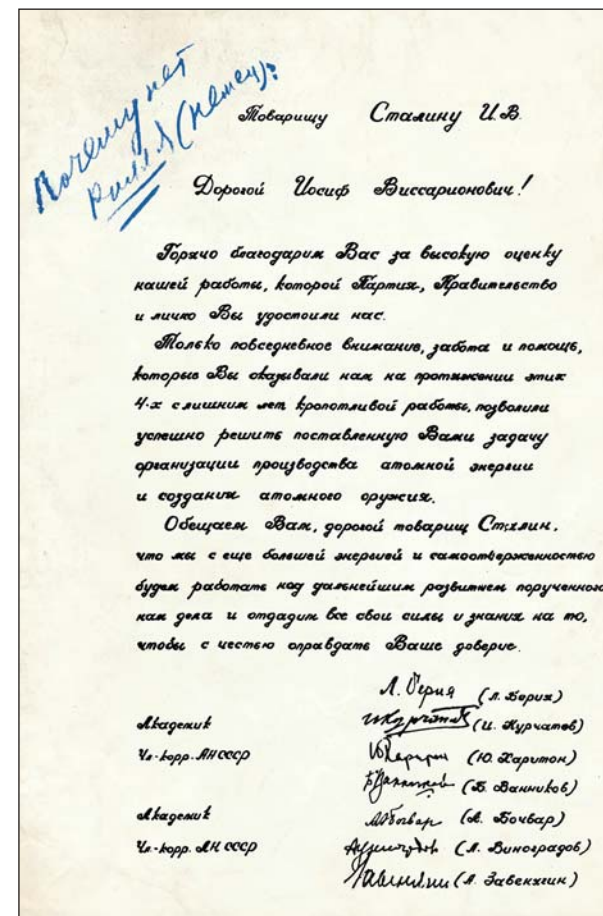 Почему нет
Рилля (немец)?
Товарищу Сталину И.В.
Дорогой Иосиф Виссарионович!
Горячо благодарим Вас за высокую оценку
нашей работы, которой Партия, Правительство
и лично Вы удостоили нас.
Только повседневное внимание, забота и помощь,
которые Вы оказывали нам на протяжении этих
4-х слишним лет кропотливой работы, позволили
успешно решить поставленную Вами задачу
организации производства атомной энергии
и создания атомного оружия.
Обещаем Вам, дорогой товарищ Сталин,
что мы с еще большей энергией и самоотверженностью
будем работать над дальнейшим развитием порученного
нам дела и отдадим все свои силы и знания на то,
чтобы с честью оправдать Ваше доверие.
Л. Берия (Л. Берия)
Академик И Курчатов (И. Курчатов)
Чл.-корр. АН СССР Ю Харитон (Ю. Харитон)
Б Ванников (Б. Ванников)
Академик А Бочвар (А. Бочвар)
Чл.-корр. АН СССР А Виноградов (А. Виноградов)
Завенягин (А. Завенягин)